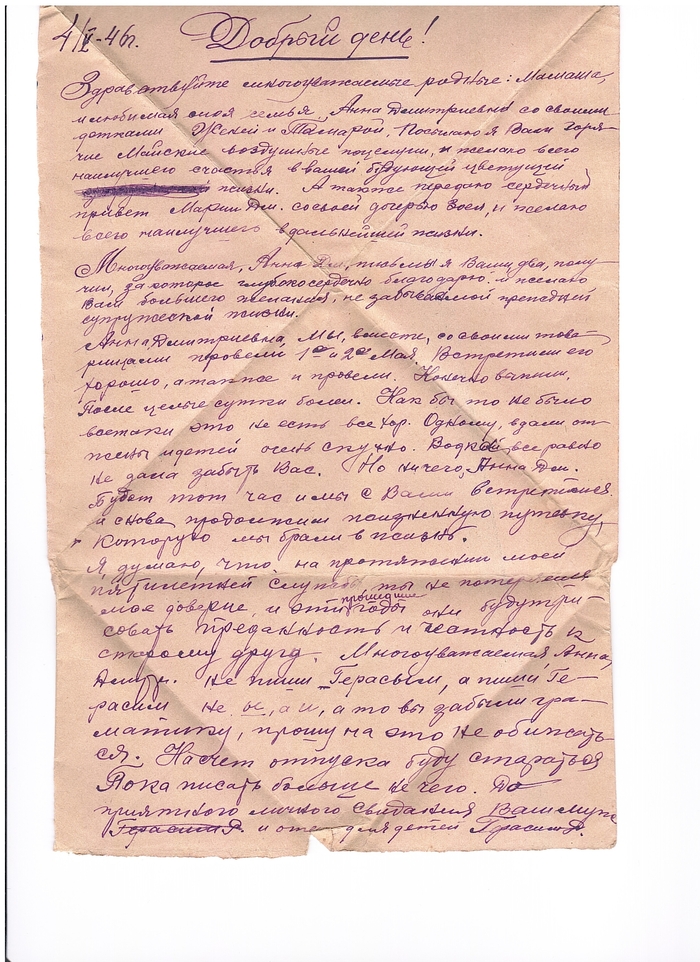 4/V-46г. Добрый день!
Здравствуйте многоуважаемые родные: Мамаша,
и любимая моя семья, Анна Дмитриевна со своими
детками Женей и Тамарой, Посылаю я Вам горя-
чие Майские воздушные поцелуи, и желаю всего
наилучшего счастья в вашей будующей цветущей
жизни. А также передаю сердечный
привет Марии Дм. со своей дочерью Зоей, и желаю
всего наилучшего в дальнейшей жизни.
Многоуважаемая, Анна Дм, письмы я Ваши два, полу-
чил, за которое глубокосердечно благодарю. и желаю
Вам большего желания, не забываемой прежней
супружеской жизни.
Анна Дмитриевна, Мы, вместе, со своими това-
рищами провели 1ое и 2ое Мая. Встретили его
хорошо, а также и провели. Конечно выпили,
После целые сутки болел. Как бы то не было
всетаки это не есть все хор. Одному, вдали от
жены и детей очень скучно. Водкой все равно
не дала забыть Вас. Но ничего, Анна Дм.
Будет тот час и мы с Вами встретимся
и снова продолжим жизненную путевку,
Которую мы брали в жизнь.
Я думаю, что на протяжении моей
пятилетней службы ты не потеряла
мое доверие, и эти прошедшие годы они будут ри-
совать преданность и честность к
старому другу. Многоуважаемая, Анна,
Дмитр. не пиши Герасым, а пиши Ге-
расим не ы, а и, а то вы забыли гра-
матику, прошу на это не обижать
ся. Насчет отпуска буду стараться
Пока писать больше не чего. До
приятного личного свидания Ваш муж
Герасим Р. и отец для детей Герасим Р.